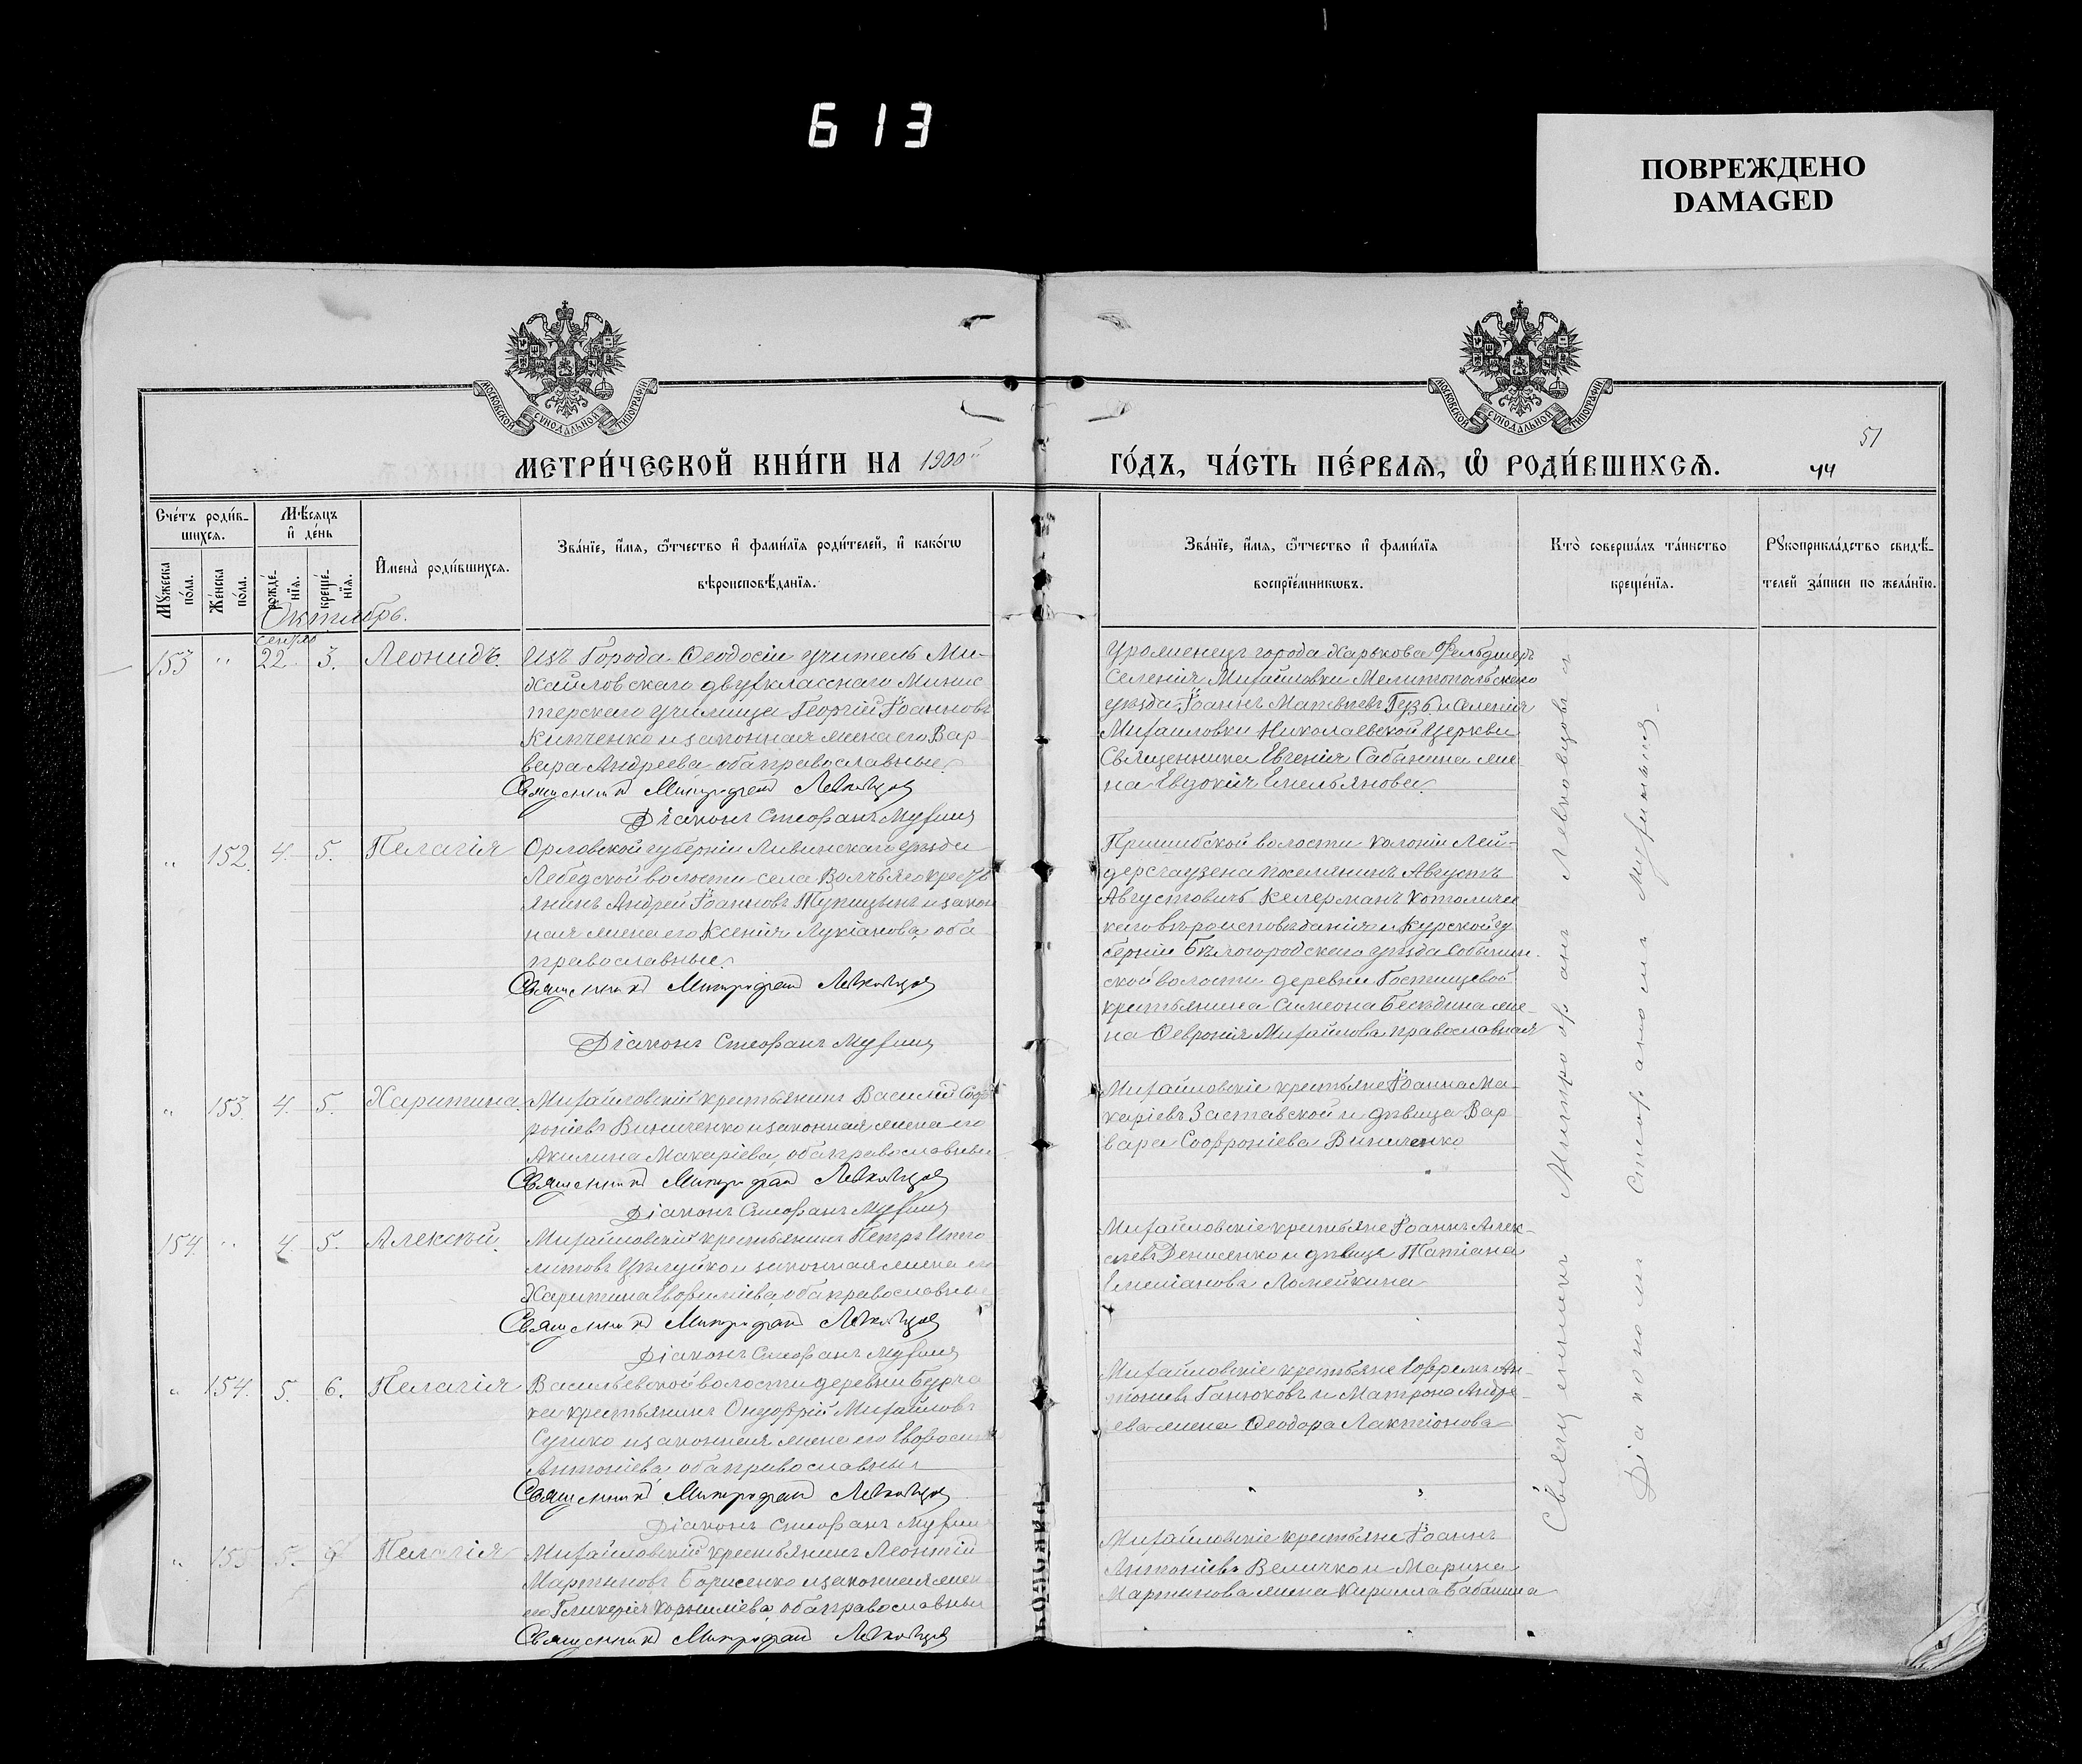 613
ПОВРЕЖДЕНО
DAMAGED
МОСКОВСКОЙ СѴНОДАЛЬНОЙ ТИПОГРАФІИ
МОСКОВСКОЙ СѴНОДАЛЬНОЙ ТИПОГРАФІИ
51
МЕТРИ́ЧЕСКОЙ КНИ́ГИ НА 1900
ГО́ДЪ, ЧА́СТЬ ПЕ́РВАѦ, Ѽ РОДИ́ВШИХСѦ.
44
Сче́тъ роди́в-
шихсѧ.
Мꙋ́жеска по́ла.
Же́нска по́ла.
Мѣ́сѧцъ
и҆ де́нь
рожде́-
нїѧ.
креще́-
нїѧ.
И҆мена̀ роди́вшихсѧ.
Зва́нїе, и҆́мѧ, ѻ҆́тчество и҆ фами́лїѧ роди́телей, и҆ како́гѡ
вѣроисповѣ́данїѧ.
Зва́нїе, и҆́мѧ, ѻ҆́тчество и҆ фами́лїѧ
воспрїе́мникѡвъ.
Кто̀ соверша́лъ та́инство
креще́нїѧ.
Рꙋкоприкла́дство свидѣ́-
телей за́писи по жела́нїю.
Октябрь.
153 " сентяб 22. 3. Леонидъ.
Изъ Города Ѳеодосіи учитель Ми-
хайловскаго двухкласснаго Минис
терскаго училища Георгій Іоанновъ
Кипченко и законная жена его Вар
вара Андреева, оба православные.
Священникъ Митрофанъ Левковцовъ
Діаконъ Стефанъ Мухинъ
Уроженецъ города Харькова Фельдшеръ
Селенія Михайловки Мелитопольскаго
уѣзда Іоаннъ Матвѣевъ Гузь и селенія
Михайловки Николаевской Церкви
Священника Евгенія Сабинина же
на Евдокія Емельянова.
" 152. 4. 5. Пелагія
Орловской губерніи Ливинскаго уѣзда
Лебедской волости села Волчьяго крест
янинъ Андрей Іоанновъ Тупицынъ и закон
ная жена его Ксенія Лукіанова, оба
православные.
Священникъ Митрофанъ Левковцовъ
Діаконъ Стефанъ Мухинъ
Пришибской волости колоніи Лей-
дерсгаузена поселянинъ Августъ
Августовичъ Келерманъ католичес
каго вѣроисповѣданія и Курской гу
берніи Бѣлогородскаго уѣзда
ской волости деревни Гостищевой
крестьянина Симеона Бесѣдина же-
на Ѳевронія Михайлова православная
" 153. 4. 5. Харитина.
Михайловскій крестьянинъ Василій Соф
роніевъ Виниченко и законная жена его
Акилина Макаріева, оба православные
Священникъ Митрофанъ Левковцовъ
Діаконъ Стефанъ Мухинъ
Михайловскіе крестьяне Іоанна Ма-
каріевъ Заставской и дѣвица Вар
вара Софроніева Виниченко
154. " 4. 5. Алексѣй.
Михайловскій крестьянинъ Петръ Иппо
литовъ Цѣлуйко и законная жена его
Харитина Евфиміева, оба православны
Священникъ Митрофанъ Левковцовъ
Діаконъ Стефанъ Мухинъ
Михайловскіе крестьяне Іоаннъ Алек-
сѣевъ Денисенко и дѣвица Татіана
Емеліанова Ломейкина
" 154. 5. 6. Пелагія
Васильевской волости деревни Бурча
ка крестьянинъ Онуфрій Михайловъ
Сушко и законная жена его Евфросин
Антоніева, оба православныя
Священникъ Митрофанъ Левковцовъ
Діаконъ Стефанъ Мухин
Михайловскіе крестьяне Ефремъ Ан-
тоніевъ Ганюковъ и Матрона Андре-
ева жена Ѳеодора Лактіонова
" 155. 5. Пелагія
Михайловскій крестьянинъ Леонтій
Мартыновъ Борисенко и законная жен
его Гликерія Корниліева, оба православны
Священникъ Митрофанъ Левковцовъ
Михайловскіе крестьяне Іоаннъ
Антоніевъ Величко и Марина
Мартинова жена Кирилла Бабанина
Священникъ Митрофанъ Левковцовъ съ
Діакономъ Стефаномъ Мухинымъ.